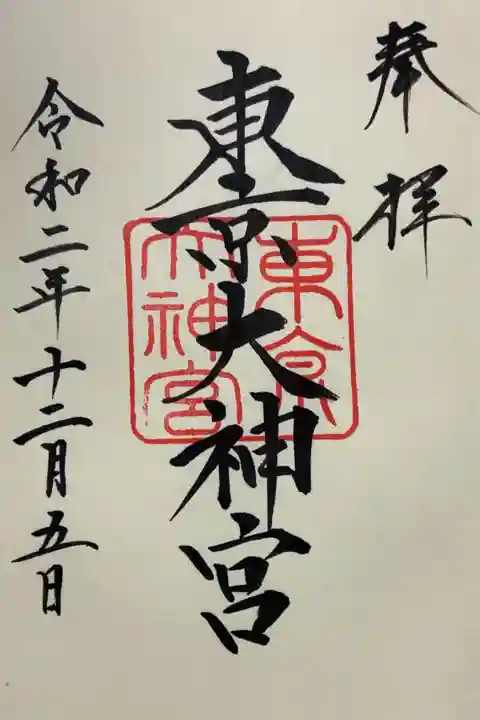 奉拝
東京大神宮
東京
大神宮
令和二年十二月五日